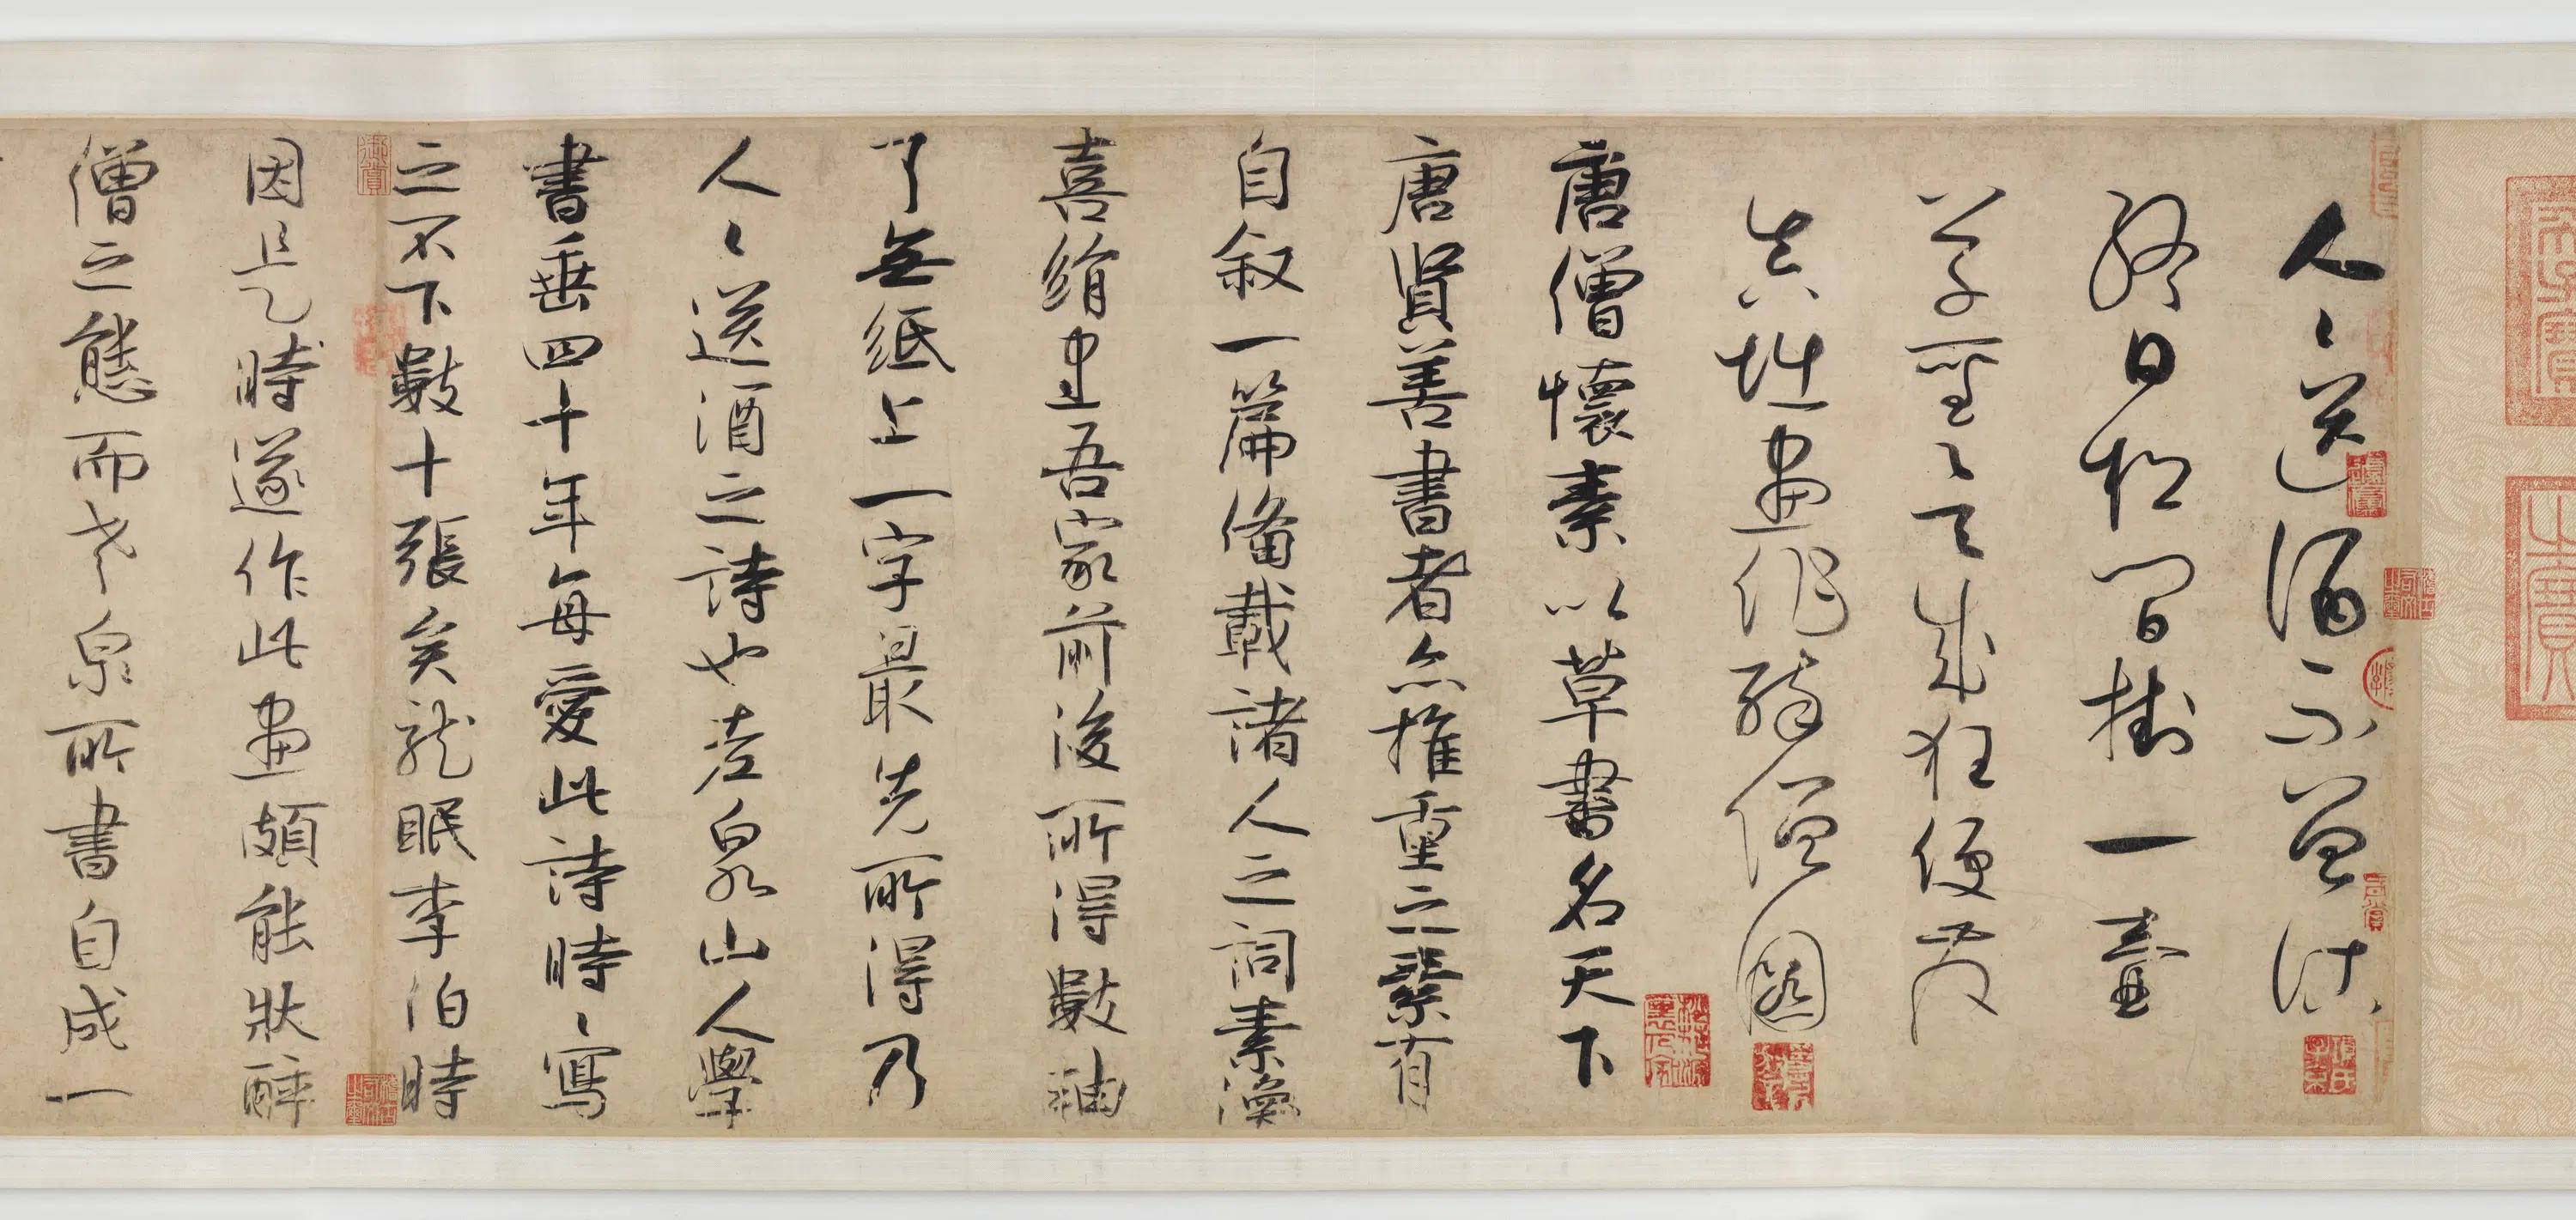 人〻送酒不曾沽
終日松間掛一壺
草聖欲成狂便發
真堪畫作醉僧圖
唐僧懷素以草書名天下
唐賢善書者亦推重之有
自叙一篇備載諸人之詞素
喜絹書吾家前後所得數軸
了無紙上一字最先所得乃
人〻送酒之詩也老泉山人學
書垂四十年每愛此詩時〻寫
之不下數十張矣龍眠李伯時
因時遂作此畫頗能狀醉
僧之態而老泉所書自成一